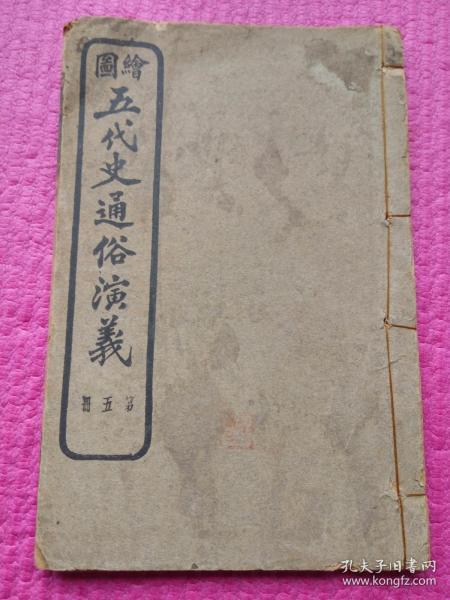 繪圖
五代史通俗演義
第五冊
孔夫子旧书网
www.kongfz.com